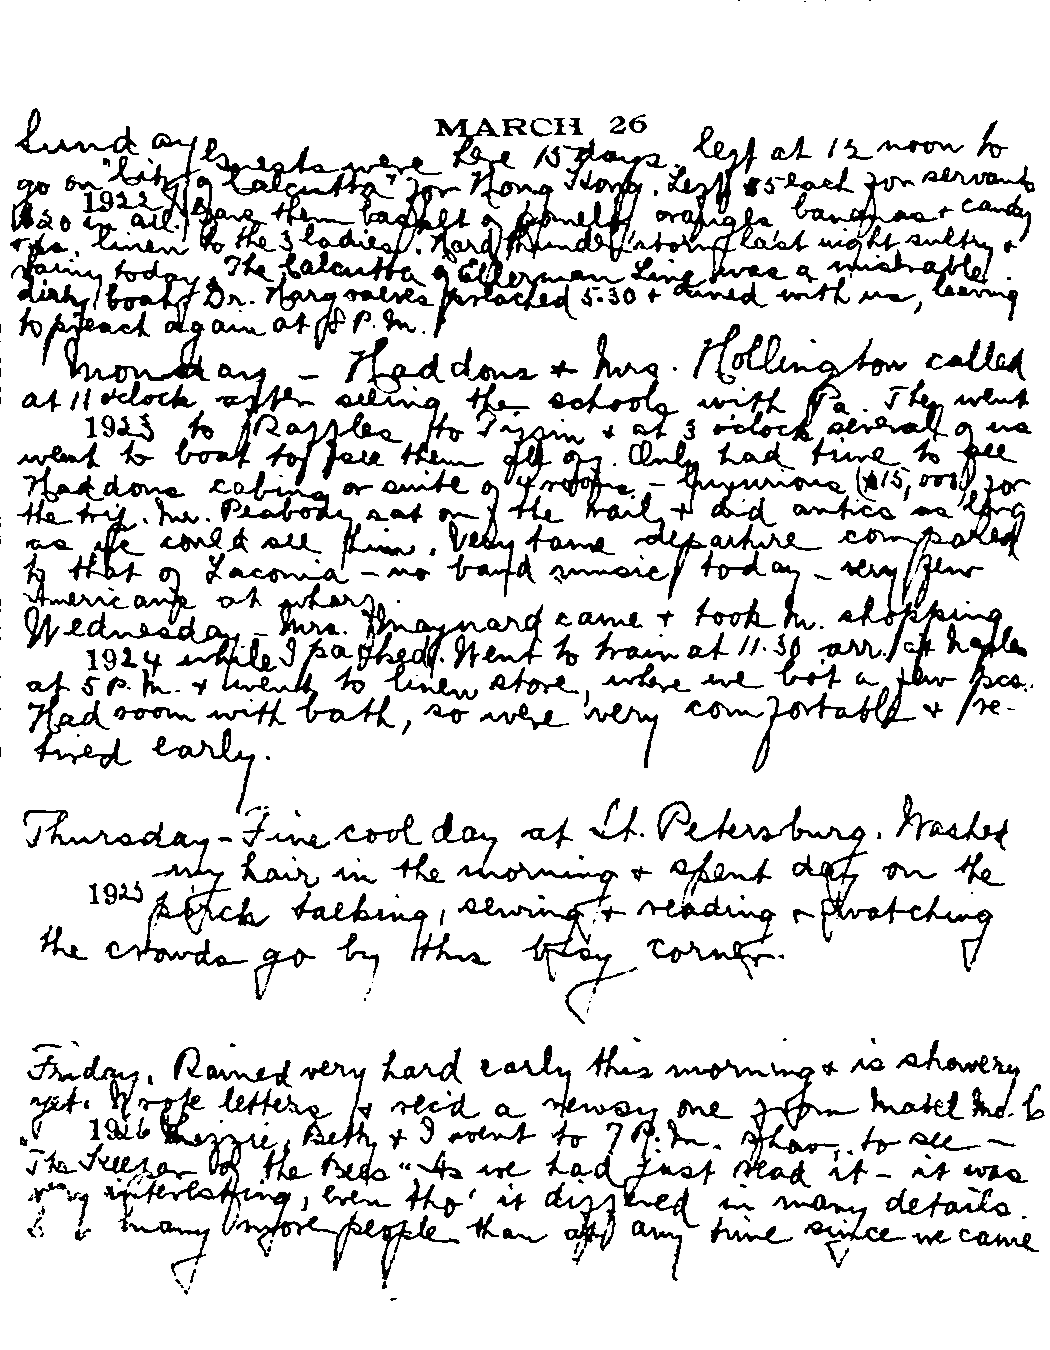 MARCH 26
Sunday guests were here 15 days. left at 12 noon to
go on "City of Calcutta" for Hong Kong. Left $5 each for servants
1922 $20 in all. Gave them basket of pomelo, oranges bananas + candy
+ linen to the 3 ladies. Hard thunder storm last night sultry +
rainy today. The Calcutta of Ellerman Line was a miserable
dirty boat. Dr. Hargreaves preached 5.30 + dined with us, leaving
to preach again at 8 P.M.
Monday - Haddons + Mrs. Hollington called
at 11 oclock after seeing the schools with Pa. They went
1923 to Raffles to Tiffin + at 3 o'clock several of us
went to boat to see them get off. Only had time to see
Haddons cabins or suite of 4 rooms. - luxurious ($15,000) for
the trip. Mr. Peabody sat on the rail + did antics as long
as we could see him. Very tame departure compared
to that of Laconia - no band music today - very few
Americans at wharf.
Wednesday - Mrs. Maynard came + took M. shopping
1924 while I packed. Went to train at 11.30 arr. at Naples
at 5 P.M. + went to linen store, where we bot a few pcs.
Had room with bath, so were very comfortable + re-
tired early.
Thursday - Fine cool day at St. Petersburg. Washed
my hair in the morning + spent day on the
1925 porch talking, sewing + reading + watching
the crowds go by this busy corner.
Friday. Rained very hard early this morning + is showery
yet. Wrote letters + rec'd a newsy one from Mabel Mc. C
1926 Lizzie, Beth, + I went to 7 P.M. show, to see -
"The Keeper of the Bees". As we had just read it - it was
very interesting, even tho' it differed in many details.
many more people than at any time since we came